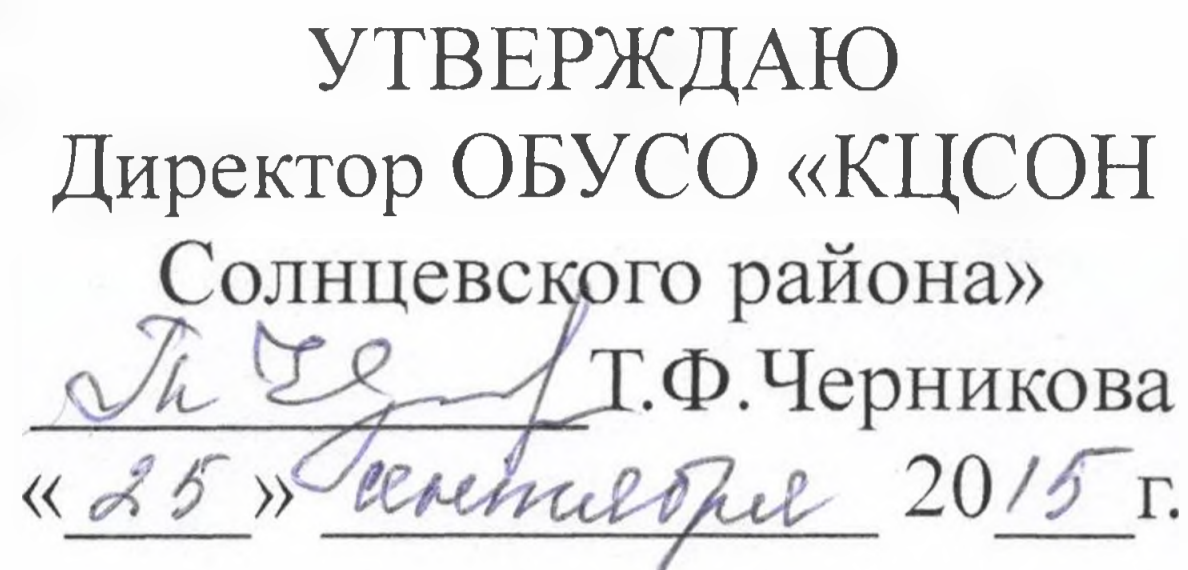 УТВЕРЖДАЮ
Директор ОБУСО «КЦСОН
Солнцевского района»
Т.Ф.Черникова
«25» сентября 2015 г.